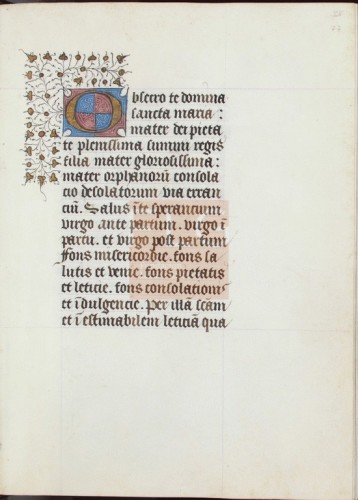 Obsecro te domina
sancta maria :
mater dei pieta
te plenissima summi regis
filia mater gloriosissima :
mater orphanorū consola
cio desolatorum via erran
ciū. Salus ī te sperancium
virgo ante partum. virgo ī
partu. et virgo post partum
Fons misericordie. fons sa
lutis et venie. fons pietatis
et leticie. fons consolationis
et īdulgencie. Per illā scām
et īestimabilem leticiā qua